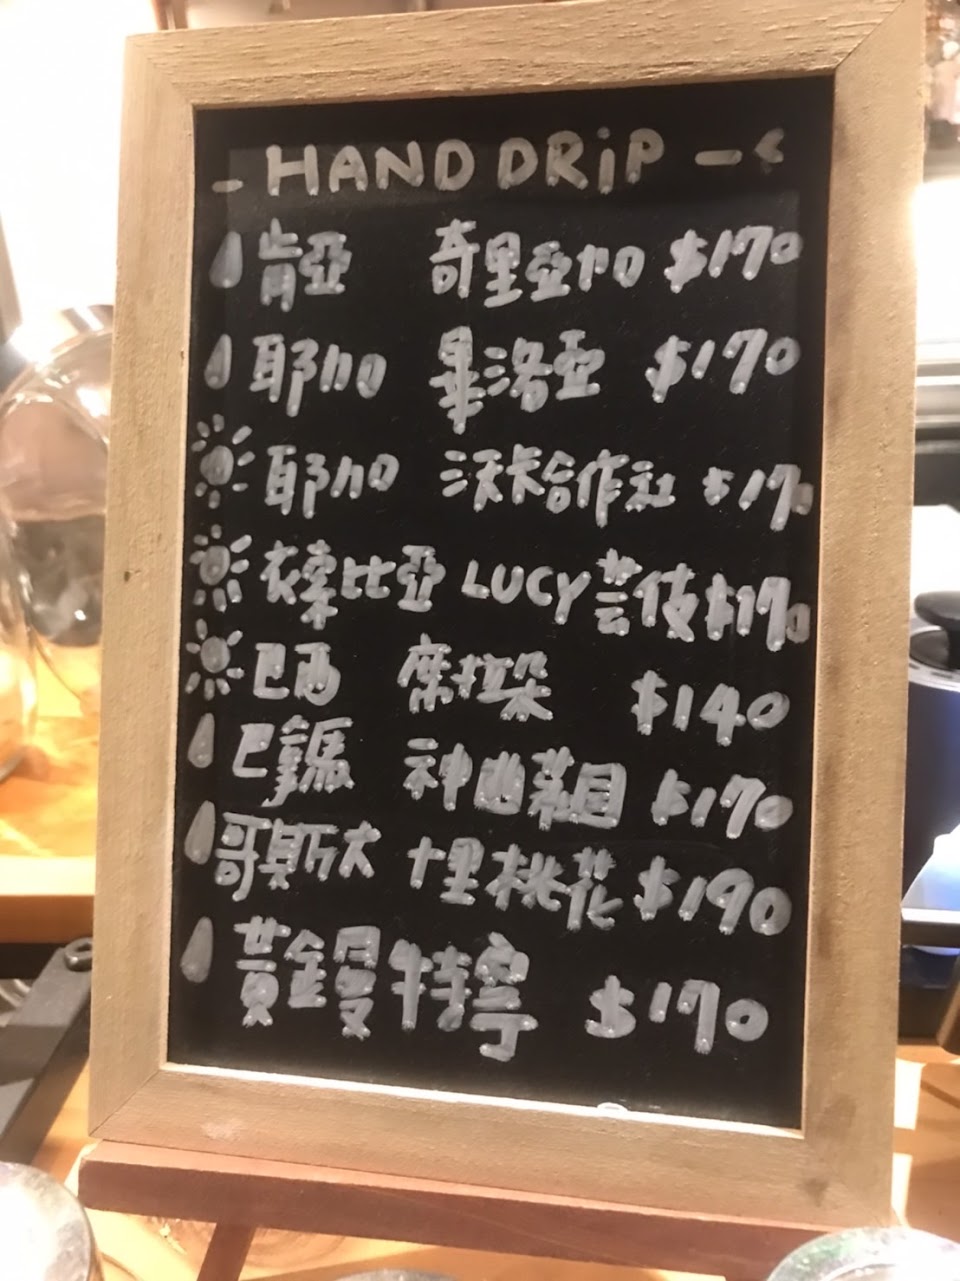 - HAND DRiP -
肯亞 奇里亞加 $170
耶加 畢洛亞 $170
耶加 沃卡合作社 $170
衣索比亞 LUCY 芸伎 $170
巴西 席拉朵 $140
巴拿馬 神幽菜園 $170
哥斯大 十里桃花 $190
黃金曼特寧 $170